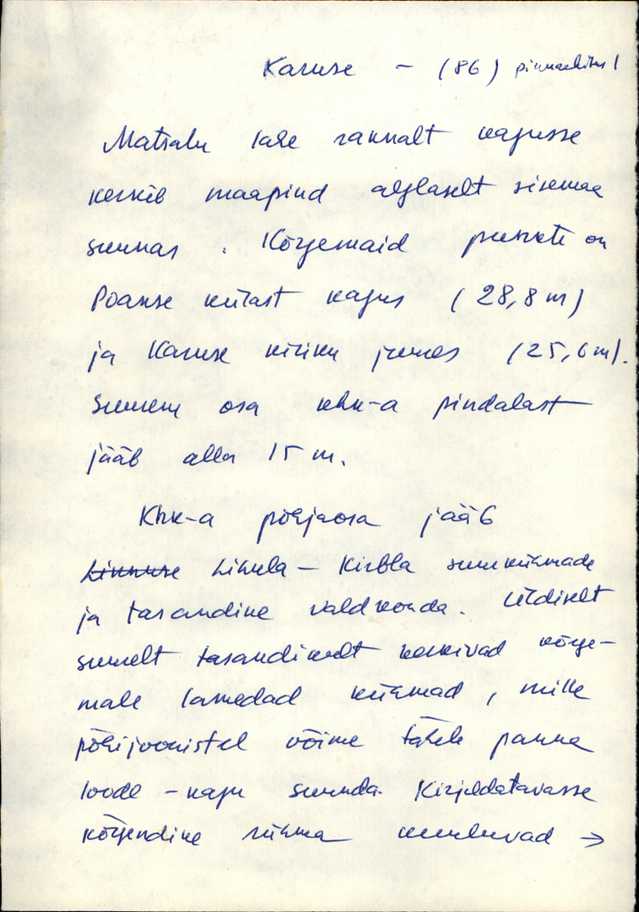 Karuse – (86) pinnaehitus!
Matsalu lahe rannalt kagusse
kerkib maapind aeglaselt sisemaa
suunas. Kõrgemaid punkte on
Poanse külast kagus (28,8 m)
ja Karuse kiriku juures (25,6 m).
Suurem osa khk-a pindalast
jääb alla 15 m.
Khk-a põhjaosa jääb
Lihula – Kirbla suurkühmade
ja tasandike valdkonda. Üldiselt
suurelt tasandikult kerkivad kõrge-
male lamedad kühmad, mille
põhijoonistel võime tähele panna
loode-kagu suunda. Kirjeldatavasse
kõrgendike rühma kuuluvad →